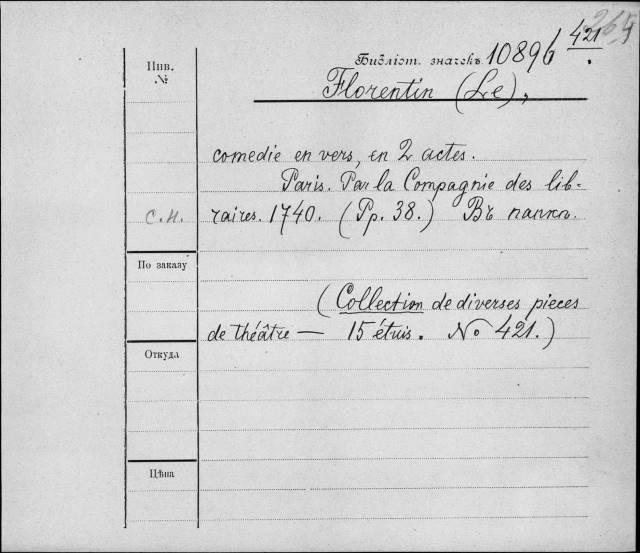 265
421
Библіот. значекъ 10896
Инв.
№
Florentin (Le),
comedie en vers, en 2 actes.
Paris. Par la Compagnie des lib-
с.н. raires. 1740. (Pp. 38.) Въ папкѣ.
По заказу
(Collection de diverses pieces
de théâtre — 15 étuis. No 421.)
Откуда
Цѣна